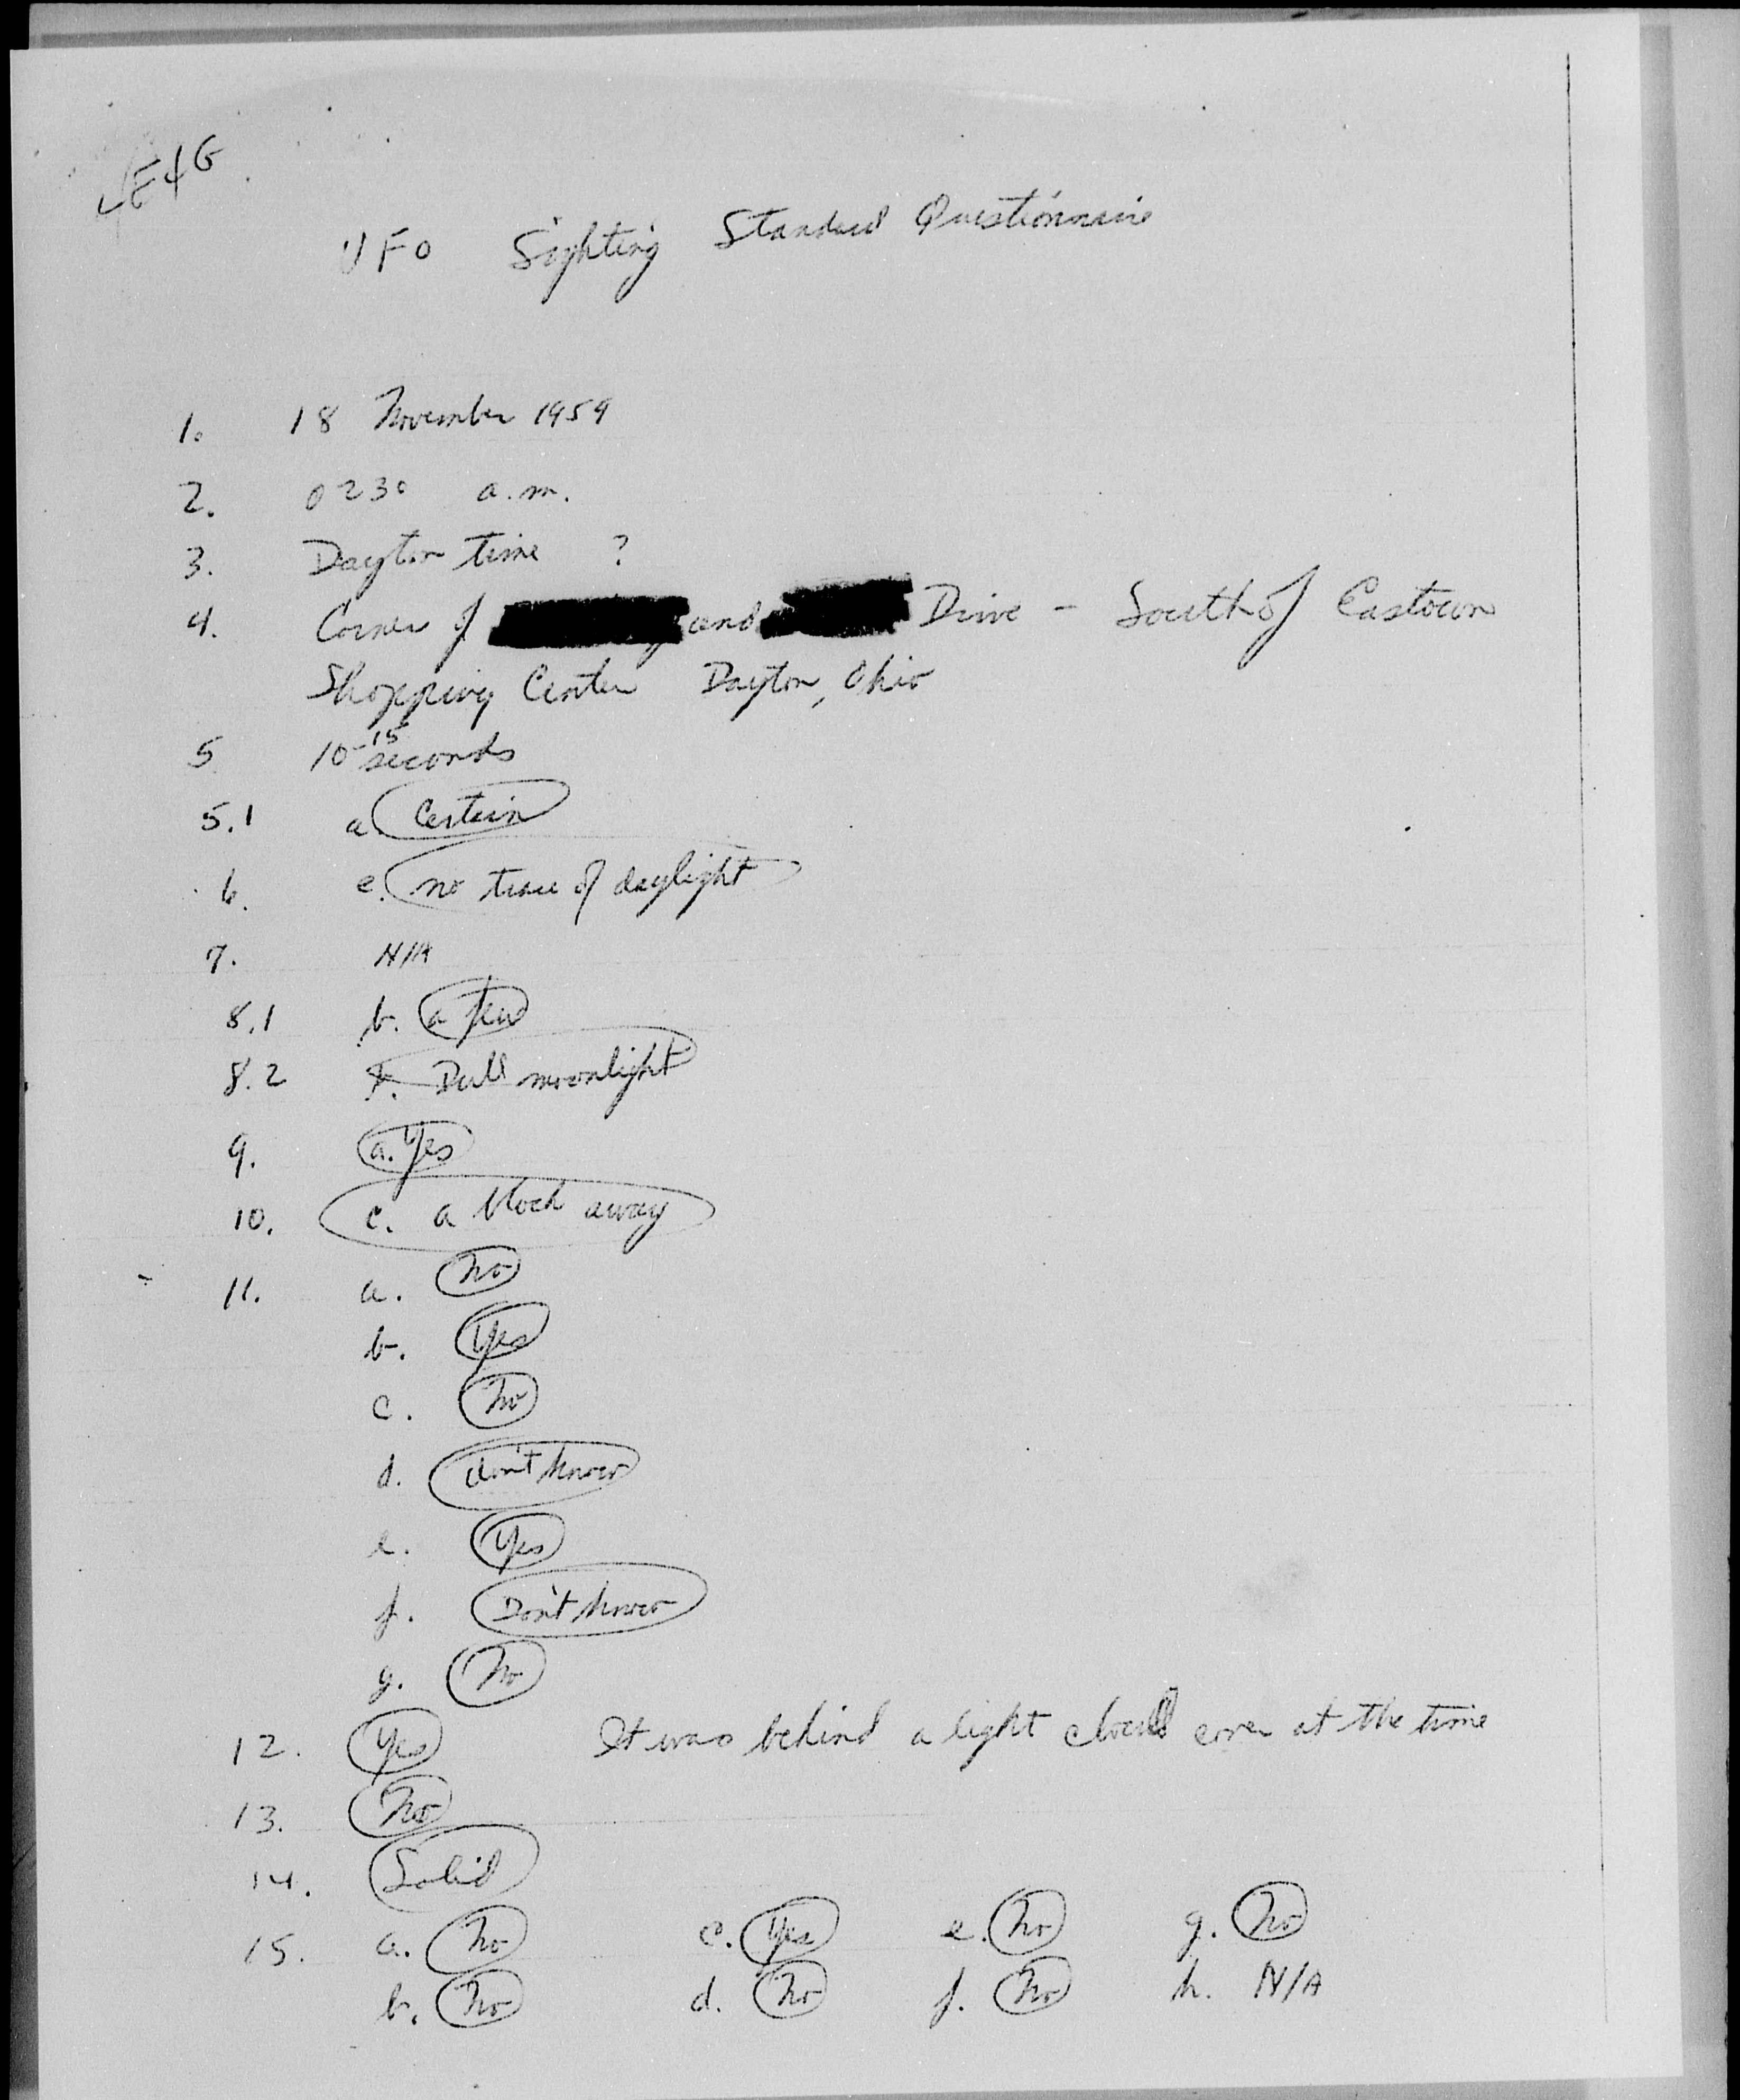 UFO Sighting Standard Questionnaire
1. 18 November 1959
2. 0230 a.m.
3. Dayton time ?
4. Corner of and Drive - South of Eastown
Shopping Center Dayton, Ohio
5 10-15 seconds
5.1 a. Certain
6. e. no trace of daylight
7. N/A
8.1 b. a few
8.2 Dull moonlight
9. a. Yes
10. c. a block away
11. a. No
b. Yes
c. No
d. don't know
e. Yes
f. Don't know
g. No
12. Yes It was behind a light cloud cover at the time
13. No
14. Solid
15. a. No c. Yes e. No g. No
b. No d. No f. No h. N/A